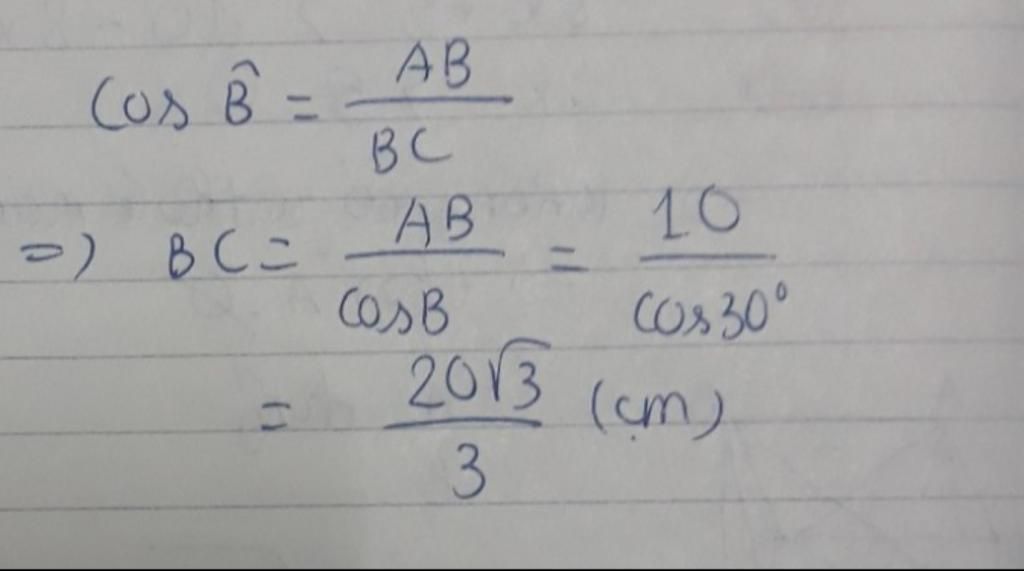 Cos B̂ = AB / BC
=> BC = AB / cosB = 10 / cos30°
= 20√3 / 3 (cm)